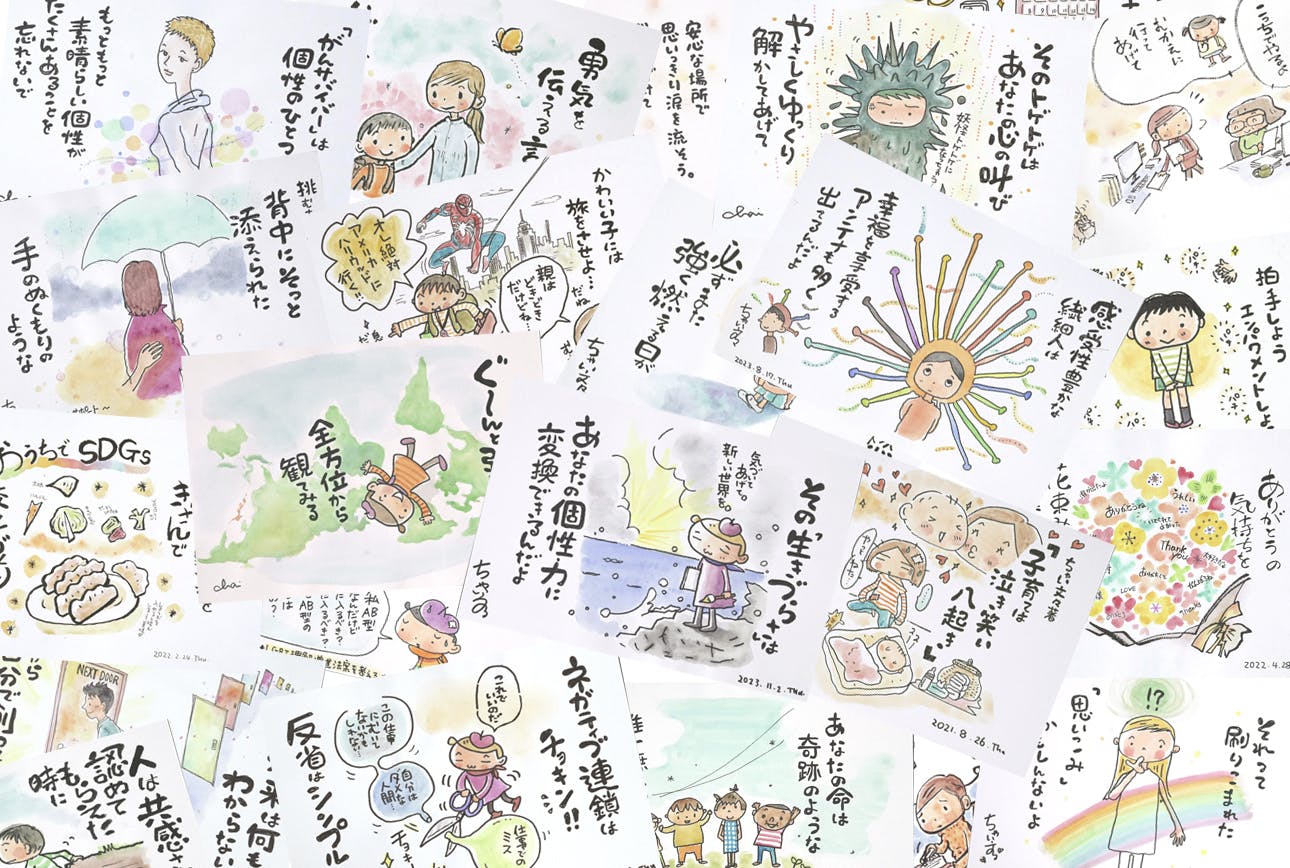 もっともっと
素晴らしい個性が
たくさんあることを
忘れないで
「がんサバイバー」は
個性のひとつ
勇気を
伝える言
安心な場所で
思いっきり涙を流そう。
そのトゲトゲは
あなたの心の叫び
やさしくゆっくり
解かしてあげて
chai
おむかえに
行って
あげて
挑む
背中にそっと
添えられた
手のぬくもりの
ような
かわいい子には
旅をさせよ…
オレ絶対
アメリカに
ハリウッドに
行く!!
親は
どきどき
だけどね…
必ずまた
強く燃える日が
感受性豊かな
繊細人は
幸福を享受する
アンテナも多く
出てるんだよ
2023.8.17.Thu
拍手しよう
エンパワメントしよ
おうちでSDGs
2022.2.24.Thu
ぐ〜んとヨ
全方位から
観てみる
chai
その「生きづらさ」は
あなたの個性力に
変換できるんだよ
気づいて
あげて。
新しい世界を。
2023.11.2.Thu
「子育ては
泣き笑い
八起き」
2021.8.26.Thu
ありがとうの
気持ちを
花束
ありがとう
Thank you
LOVE
2022.4.28
私AB型
なんだけど
AB型の
NEXT DOOR
人は共感
認めて
もらえた
時に
わからない
ネガティブ連鎖は
チョキン!!
反省はシンプル
これで
いいのだ
この仕事
自分は
ダメな
人間…
仕事での
ミス
チョキ
あなたの命は
奇跡のような
それって
刷りこまれた
「思いこみ」
かもしんないよ
!?